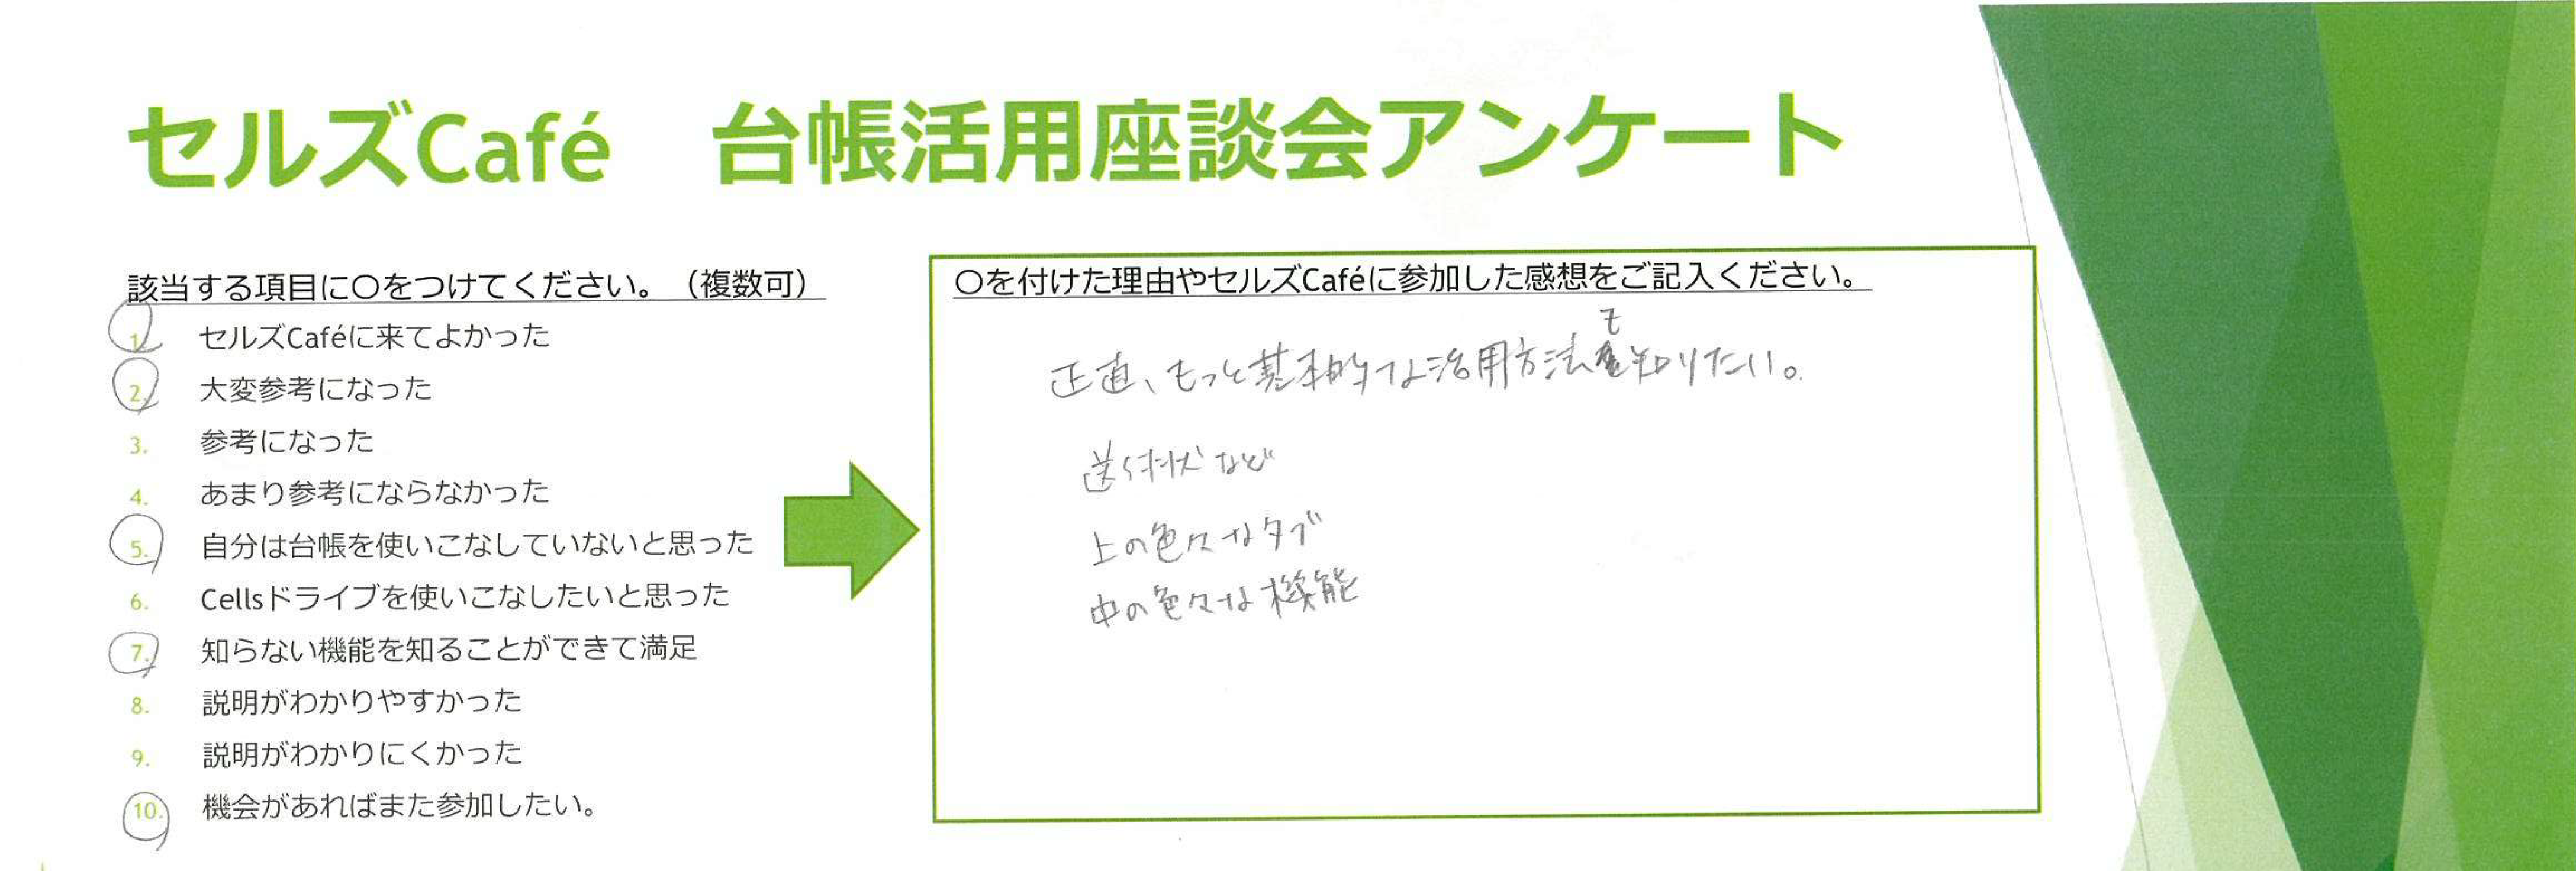 セルズCafé　台帳活用座談会アンケート
該当する項目に〇をつけてください。（複数可）
1. セルズCaféに来てよかった
2. 大変参考になった
3. 参考になった
4. あまり参考にならなかった
5. 自分は台帳を使いこなしていないと思った
6. Cellsドライブを使いこなしたいと思った
7. 知らない機能を知ることができて満足
8. 説明がわかりやすかった
9. 説明がわかりにくかった
10. 機会があればまた参加したい。
〇を付けた理由やセルズCaféに参加した感想をご記入ください。
正直、もっと基本的な活用方法も知りたい。
送付状など
上の色々なタブ
中の色々な機能